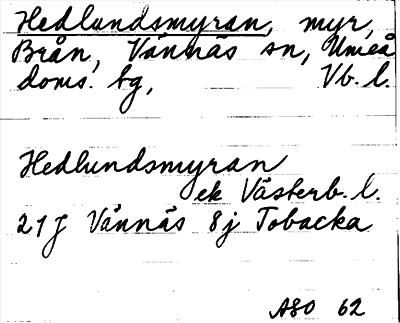 Hedlundsmyran, myr,
Brån, Vännäs sn, Umeå
doms. bg, Vb. l.
Hedlundsmyran
ek Västerb. l.
21J Vännäs 8j Tobacka
ASO 62